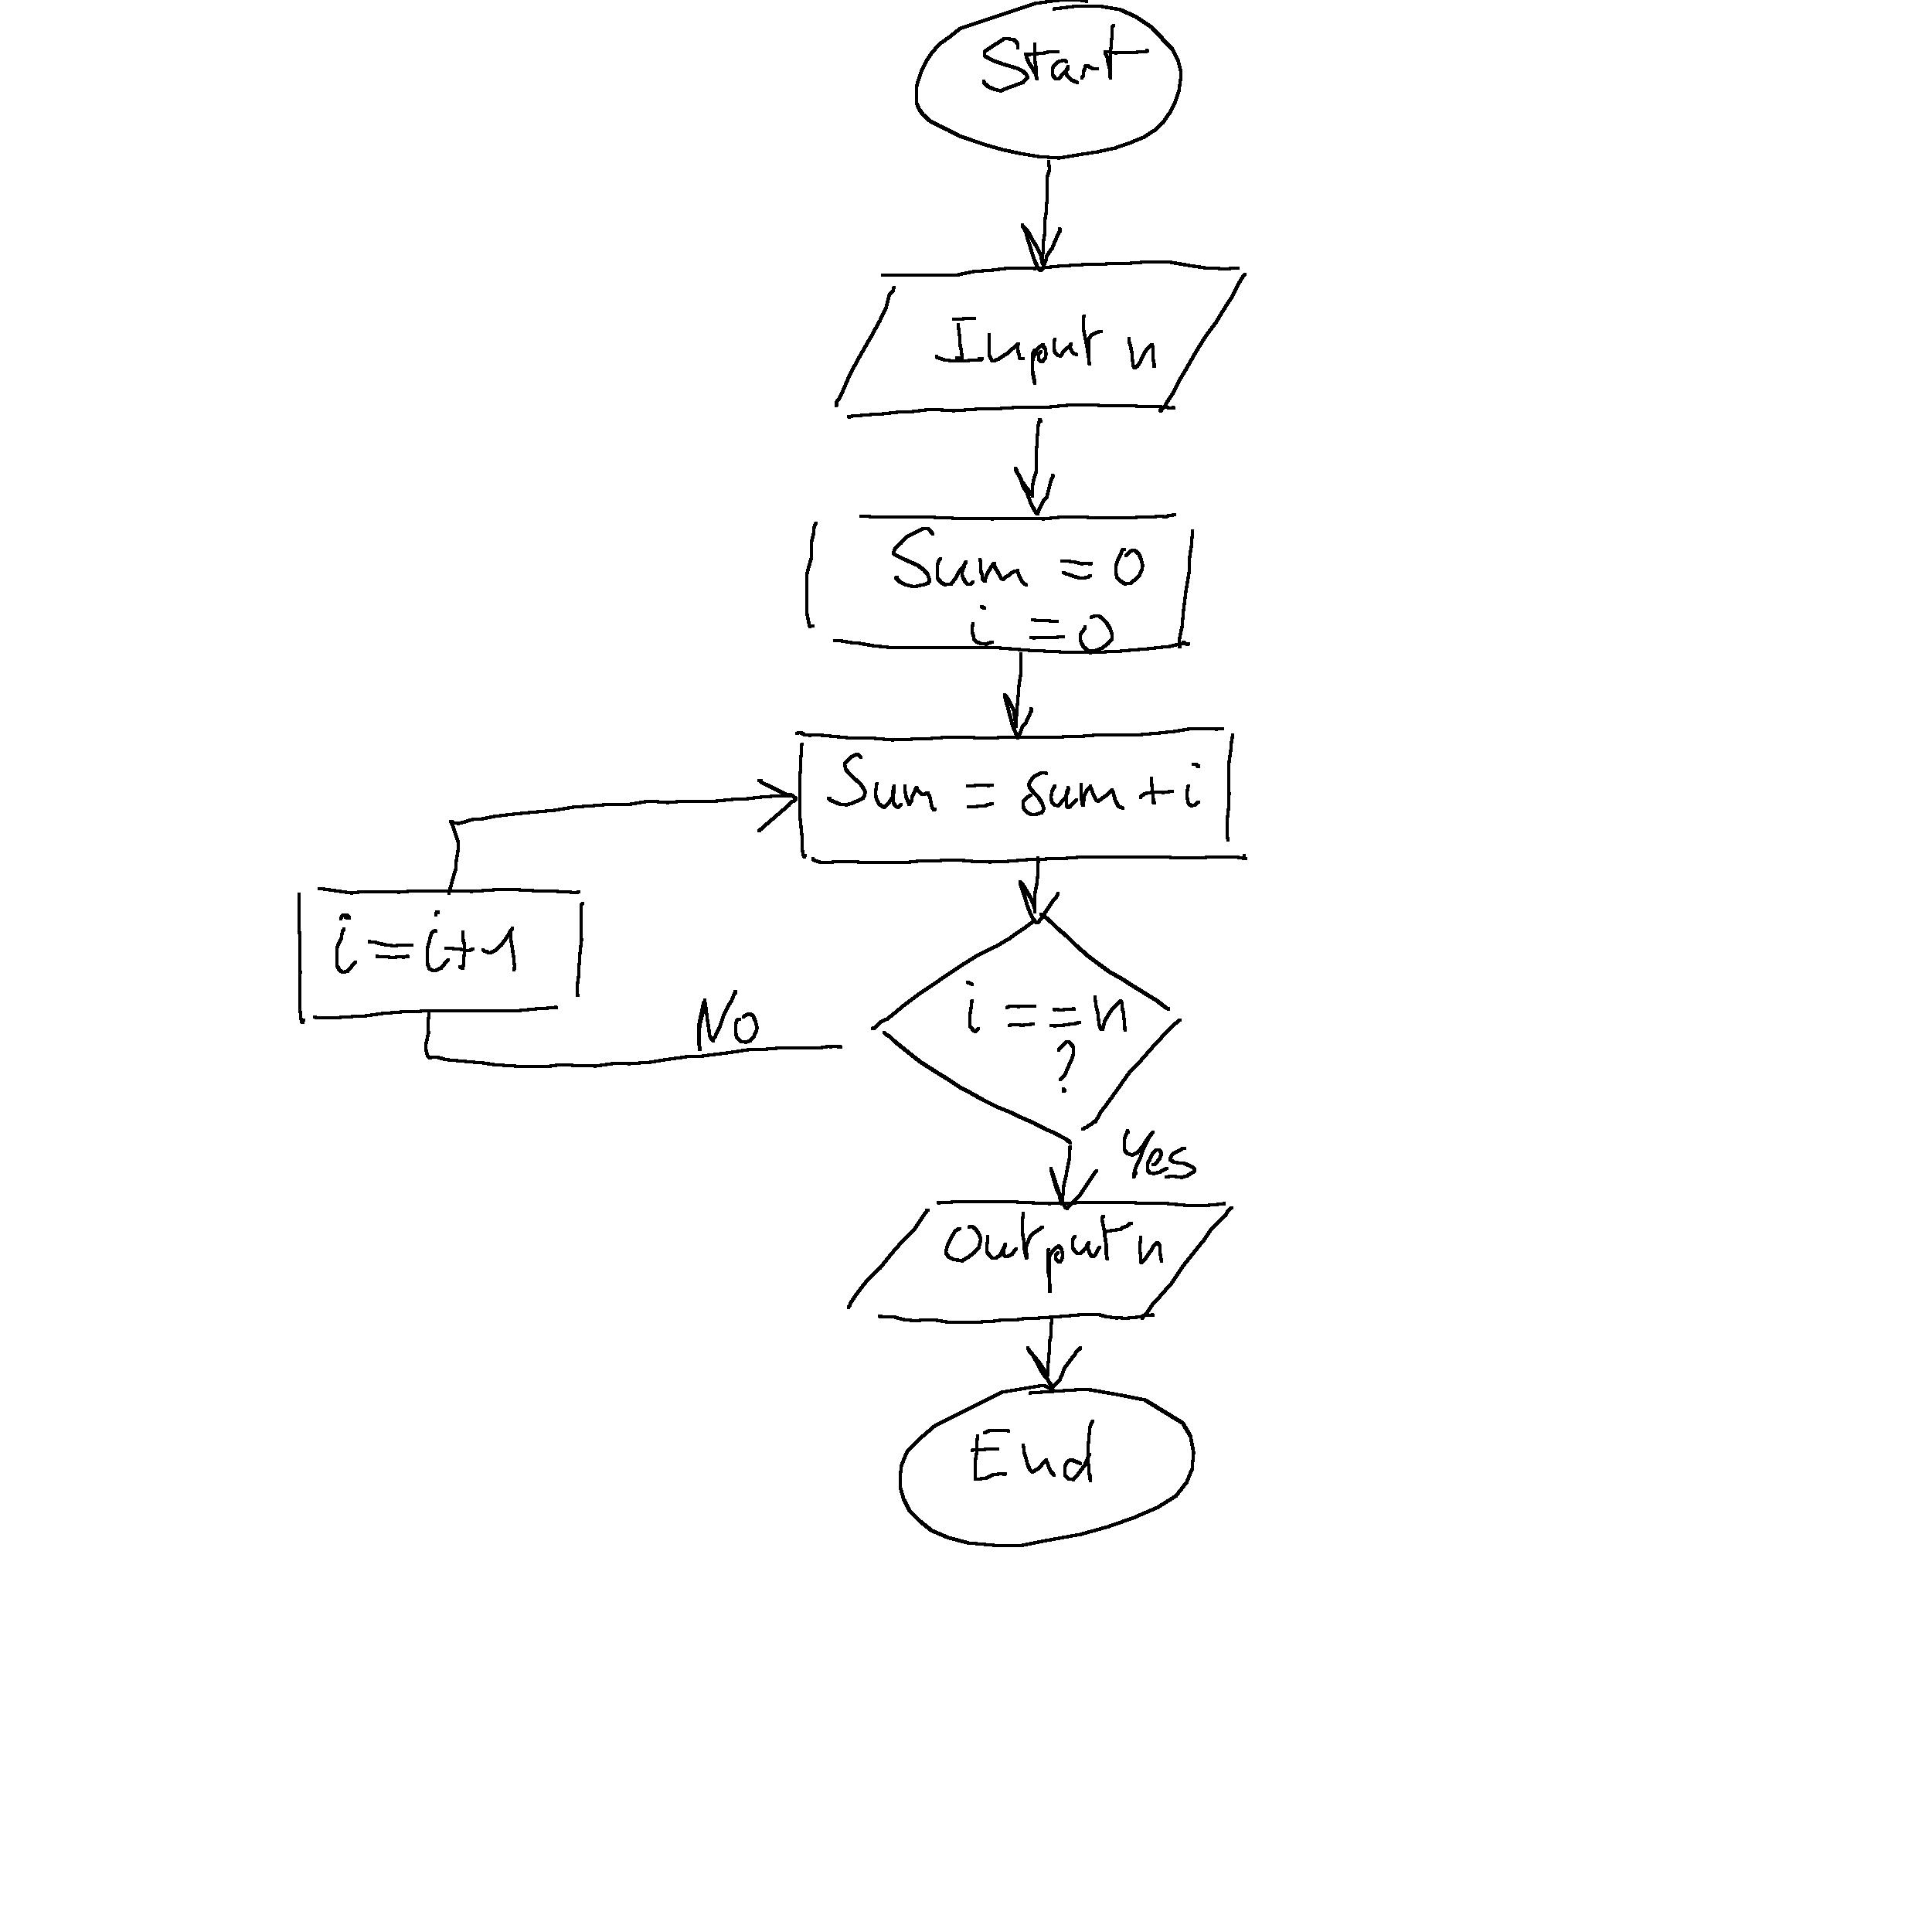 Start
Input n
Sum = 0
i = 0
Sum = sum + i
i = i + 1
No
i == n
?
Yes
Output n
End